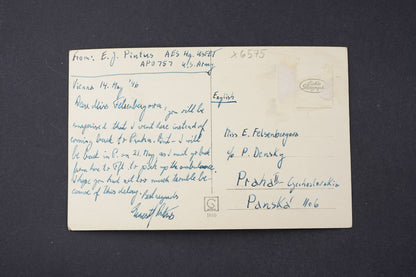 From: E. J. Pintus AES Hq. USFET
APO 757 U.S. Army
x6575
Vienna 14. May '46
Dear Miss Felsenbergova, you will be
surprised that I went here instead of
coming back to Praha. But I will
be back in P. on 21. May as I must go back
from here to Fft. to pick up the ambulance.
I hope you had not too much trouble be
cause of this delay. Best regards
Ernest Pintus
English
Miss E. Felsenbergova
c/o P. Densky
Praha II - Czechoslovakia
Panská No 6